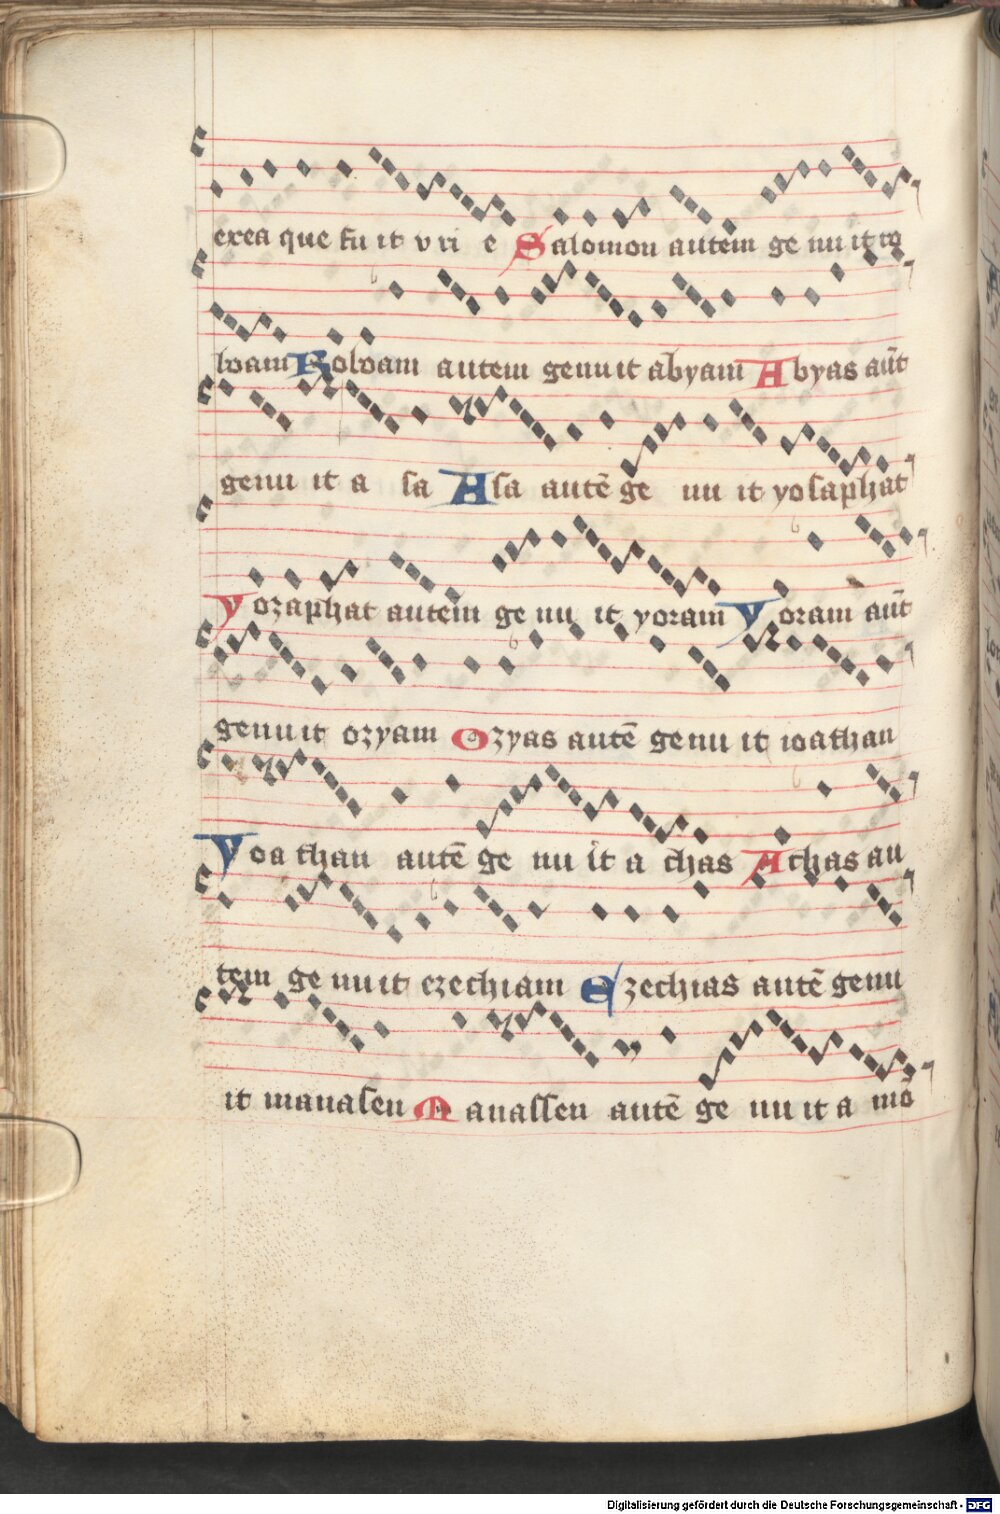 exea que fu it v ri e Salomon autem ge nu it ro
boam Roboam autem genuit abyam Abyas aut̄
genu it a sa Asa autē ge nu it yosaphat
yozaphat autem ge nu it yoram Yoram aut̄
genuit ozyam Ozyas autē genu it ioathan
Yoa than autē ge nu it a chas Achas au
tem ge nuit ezechiam Ezechias autē genu
it manasen Manassen autē ge nu it a mō
Digitalisierung gefördert durch die Deutsche Forschungsgemeinschaft - DFG